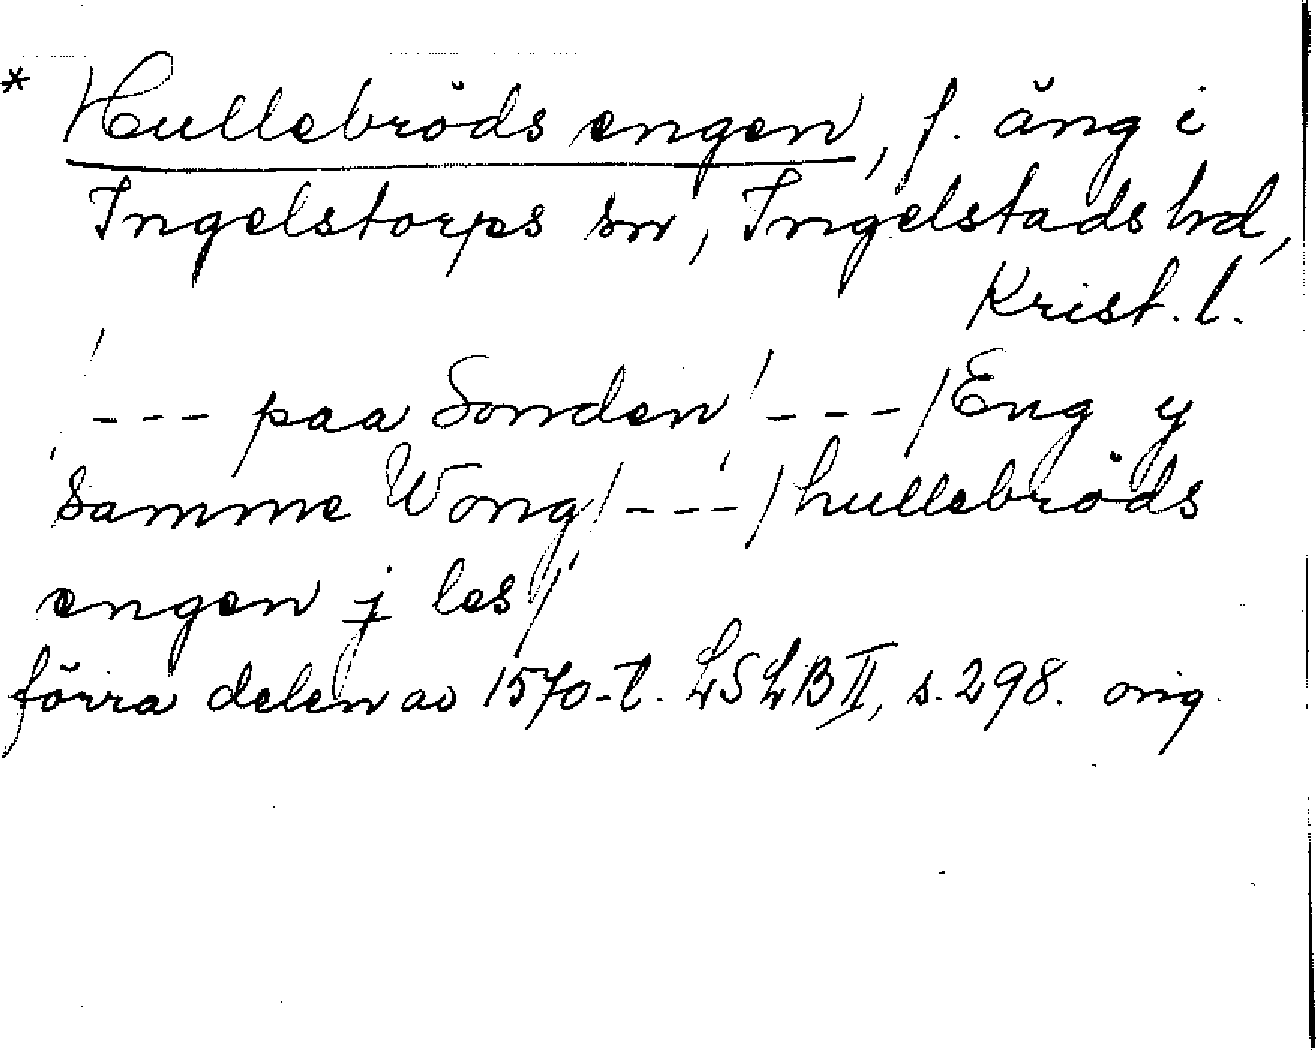 * Hullebröds engen, f. äng i
Ingelstorps sn, Ingelstads hd,
Krist. l.
/--- paa Sonden /---/ Eng y
samme Wong /---/ hullebröds
engen j les /
förra delen av 1570-t. LSLB II, s. 298. orig.